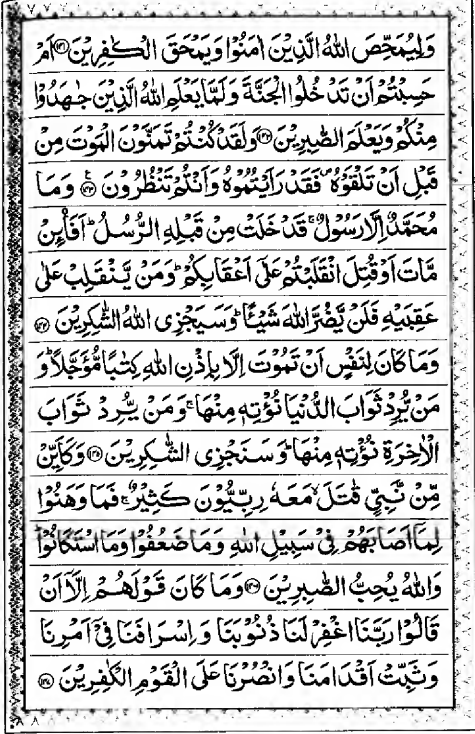 وَلِيُمَحِّصَ اللّٰهُ الَّذِيْنَ اٰمَنُوْا وَيَمْحَقَ الْكٰفِرِيْنَ ﴿۱۴۱﴾ اَمْ
حَسِبْتُمْ اَنْ تَدْخُلُوا الْجَنَّةَ وَلَمَّا يَعْلَمِ اللّٰهُ الَّذِيْنَ جٰهَدُوْا
مِنْكُمْ وَيَعْلَمَ الصّٰبِرِيْنَ ﴿۱۴۲﴾ وَلَقَدْ كُنْتُمْ تَمَنَّوْنَ الْمَوْتَ مِنْ
قَبْلِ اَنْ تَلْقَوْهُ ۪ فَقَدْ رَاَيْتُمُوْهُ وَاَنْتُمْ تَنْظُرُوْنَ ﴿۱۴۳﴾ وَمَا
مُحَمَّدٌ اِلَّا رَسُوْلٌ ۚ قَدْ خَلَتْ مِنْ قَبْلِهِ الرُّسُلُ ؕ اَفَا۟ئِنْ
مَّاتَ اَوْ قُتِلَ انْقَلَبْتُمْ عَلٰٓى اَعْقَابِكُمْ ؕ وَمَنْ يَّنْقَلِبْ عَلٰى
عَقِبَيْهِ فَلَنْ يَّضُرَّ اللّٰهَ شَيْـًٔا ؕ وَسَيَجْزِى اللّٰهُ الشّٰكِرِيْنَ ﴿۱۴۴﴾
وَمَا كَانَ لِنَفْسٍ اَنْ تَمُوْتَ اِلَّا بِاِذْنِ اللّٰهِ كِتٰبًا مُّؤَجَّلًا ؕ وَ
مَنْ يُّرِدْ ثَوَابَ الدُّنْيَا نُؤْتِهٖ مِنْهَا ۚ وَمَنْ يُّرِدْ ثَوَابَ
الْاٰخِرَةِ نُؤْتِهٖ مِنْهَا ؕ وَسَنَجْزِى الشّٰكِرِيْنَ ﴿۱۴۵﴾ وَكَاَيِّنْ
مِّنْ نَّبِيٍّ قٰتَلَ ۙ مَعَهٗ رِبِّيُّوْنَ كَثِيْرٌ ۚ فَمَا وَهَنُوْا
لِمَاۤ اَصَابَهُمْ فِيْ سَبِيْلِ اللّٰهِ وَمَا ضَعُفُوْا وَمَا اسْتَكَانُوْا ؕ
وَاللّٰهُ يُحِبُّ الصّٰبِرِيْنَ ﴿۱۴۶﴾ وَمَا كَانَ قَوْلَهُمْ اِلَّاۤ اَنْ
قَالُوْا رَبَّنَا اغْفِرْ لَنَا ذُنُوْبَنَا وَاِسْرَافَنَا فِيْۤ اَمْرِنَا
وَثَبِّتْ اَقْدَامَنَا وَانْصُرْنَا عَلَى الْقَوْمِ الْكٰفِرِيْنَ ﴿۱۴۷﴾